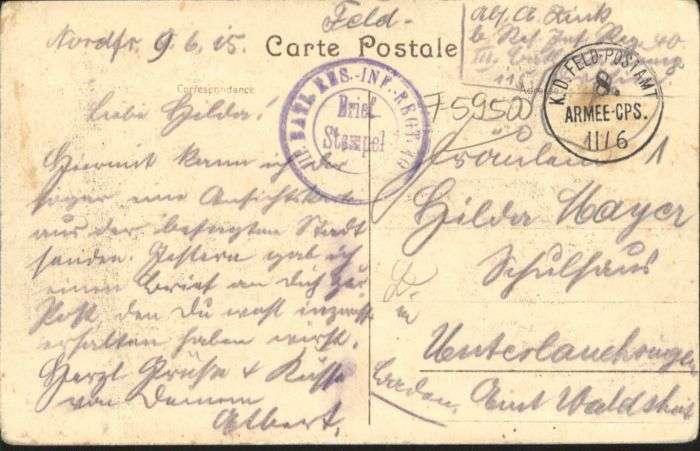 Nordfr. 9.6.15.
Feld-
Carte Postale
Abs. A. Zink
b. Res. Inf. Reg. 40
III. Batl.
11.
Correspondance
Adresse
III. BATL. RES.-INF.-REGT. 40
Brief
Stempel
759500
K.D. FELD-POSTAMT
8.
ARMEE-CPS.
11/6
Liebe Hilda!
Hiermit kann ich der
eine Ansichtskarte
aus der besagten Stadt
senden. Gestern gab ich
einen Brief an dich zur
Post, den Du wohl inzwisch
erhalten haben wirst.
Herzl Grüße & Küsse
von Deinem
Albert.
Fräulein
Hilda Mayer
Schulhaus
in
Unterlauchringen
Baden. Amt Waldshut